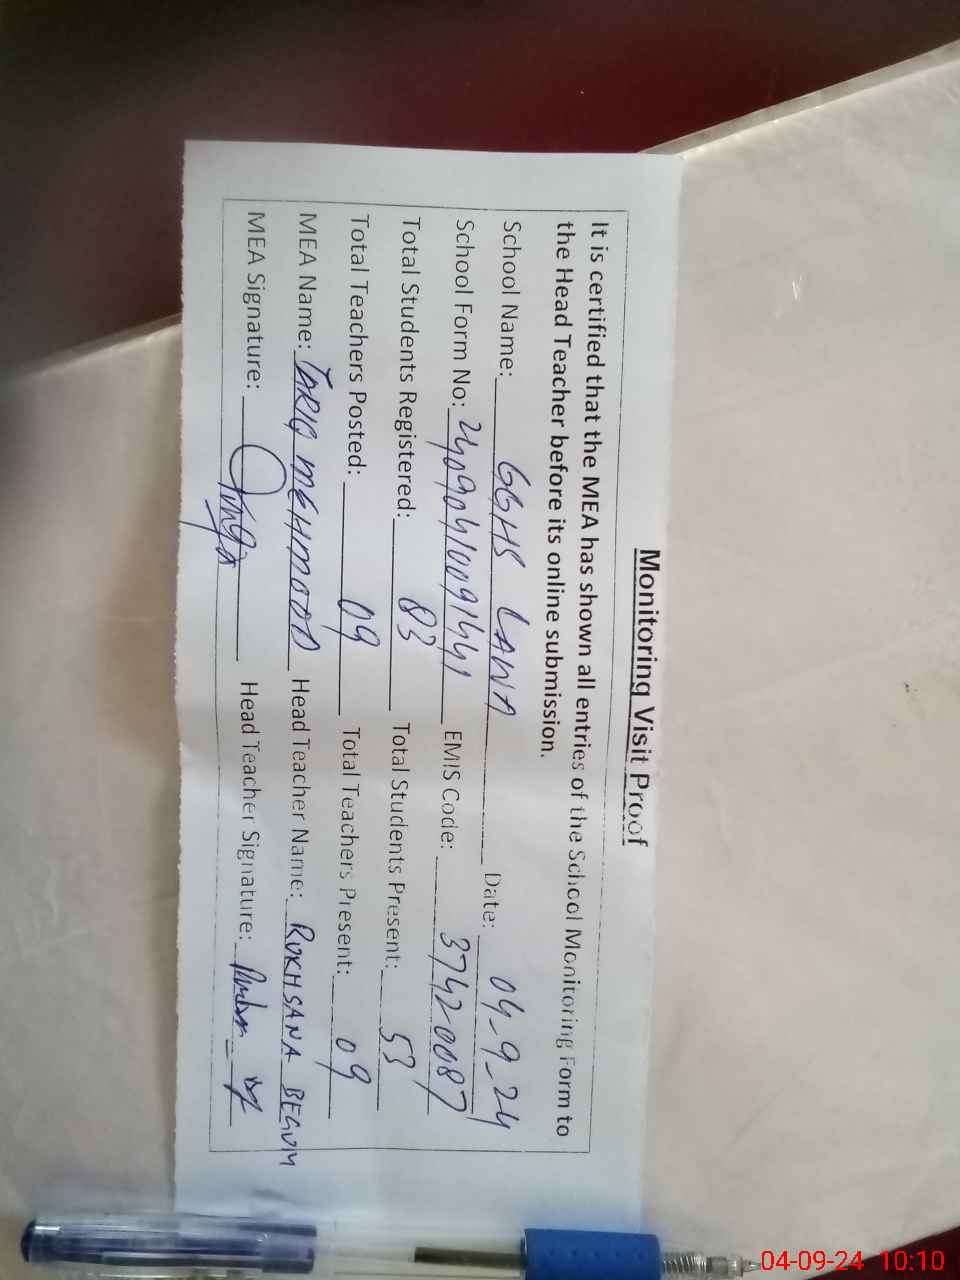 Monitoring Visit Proof
It is certified that the MEA has shown all entries of the School Monitoring Form to
the Head Teacher before its online submission.
School Name: GGHS LAWA Date: 04-9-24
School Form No: EMIS Code: 37420087
Total Students Registered: 83 Total Students Present: 53
Total Teachers Posted: 09 Total Teachers Present: 09
MEA Name: TARIQ MEHMOOD Head Teacher Name: RUKHSANA BEGUM
MEA Signature: Head Teacher Signature:
04-09-24 10:10